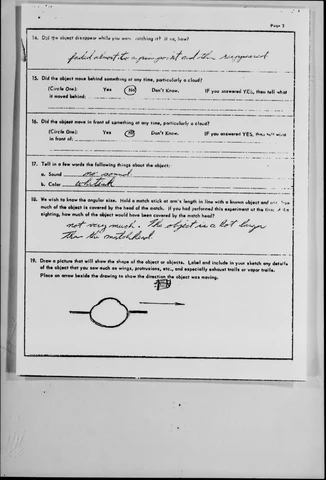 Page 3
14. Did the object disappear while you were watching it? If so, how?
faded almost to a pinpoint and then reappeared
15. Did the object move behind something at any time, particularly a cloud?
(Circle One): Yes No Don't Know. IF you answered YES, then tell what
it moved behind:
16. Did the object move in front of something at any time, particularly a cloud?
(Circle One): Yes No Don't Know. IF you answered YES, then tell what
in front of:
17. Tell in a few words the following things about the object:
a. Sound no sound
b. Color whitish
18. We wish to know the angular size. Hold a match stick at arm's length in line with a known object and note how
much of the object is covered by the head of the match. If you had performed this experiment at the time of the
sighting, how much of the object would have been covered by the match head?
not very much. The object is a lot larger
than the matchhead
19. Draw a picture that will show the shape of the object or objects. Label and include in your sketch any details
of the object that you saw such as wings, protrusions, etc., and especially exhaust trails or vapor trails.
Place an arrow beside the drawing to show the direction the object was moving.